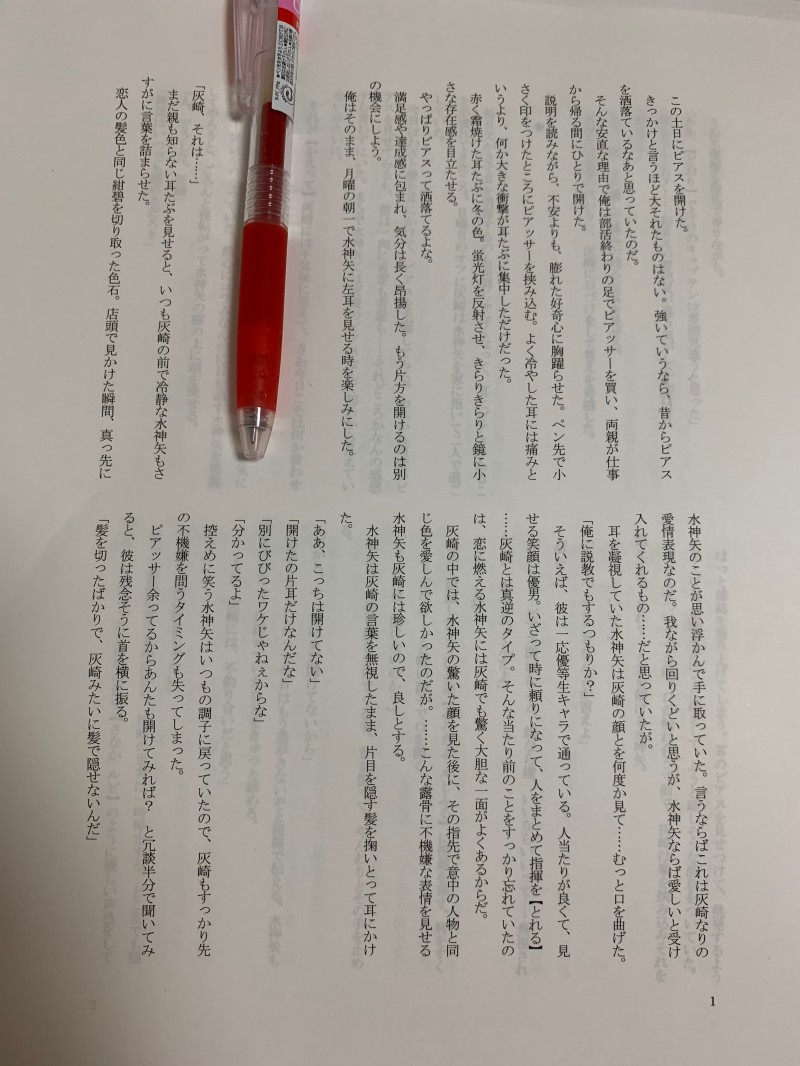 この土日にピアスを開けた。
きっかけと言うほど大それたものはない。強いていうなら、昔からピアス
を洒落ているなあと思っていたのだ。
そんな安直な理由で俺は部活終わりの足でピアッサーを買い、両親が仕事
から帰る間にひとりで開けた。
説明を読みながら、不安よりも、膨れた好奇心に胸躍らせた。ペン先で小
さく印をつけたところにピアッサーを挟み込む。よく冷やした耳には痛みと
いうより、何か大きな衝撃が耳たぶに集中しただけだった。
赤く霜焼けた耳たぶに冬の色。蛍光灯を反射させ、きらりきらりと鏡に小
さな存在感を目立たせる。
やっぱりピアスって洒落てるよな。
満足感や達成感に包まれ、気分は長く昂揚した。もう片方を開けるのは別
の機会にしよう。
俺はそのまま、月曜の朝一で水神矢に左耳を見せる時を楽しみにした。
「灰崎、それは……」
まだ親も知らない耳たぶを見せると、いつも灰崎の前で冷静な水神矢もさ
すがに言葉を詰まらせた。
恋人の髪色と同じ紺碧を切り取った色石。店頭で見かけた瞬間、真っ先に
水神矢のことが思い浮かんで手に取っていた。言うならばこれは灰崎なりの
愛情表現なのだ。我ながら回りくどいと思うが、水神矢ならば愛しいと受け
入れてくれるもの……だと思っていたが。
耳を凝視していた水神矢は灰崎の顔とを何度か見て……むっと口を曲げた。
「俺に説教でもするつもりか？」
そういえば、彼は一応優等生キャラで通っている。人当たりが良くて、見
せる笑顔は優男。いざって時に頼りになって、人をまとめて指揮を【とれる】
……灰崎とは真逆のタイプ。そんな当たり前のことをすっかり忘れていたの
は、恋に燃える水神矢には灰崎でも驚く大胆な一面がよくあるからだ。
灰崎の中では、水神矢の驚いた顔を見た後に、その指先で意中の人物と同
じ色を愛しんで欲しかったのだが。……こんな露骨に不機嫌な表情を見せる
水神矢も灰崎には珍しいので、良しとする。
水神矢は灰崎の言葉を無視したまま、片目を隠す髪を掬いとって耳にかけ
た。
「ああ、こっちは開けてない」
「開けたの片耳だけなんだな」
「別にびびったワケじゃねぇからな」
「分かってるよ」
控えめに笑う水神矢はいつもの調子に戻っていたので、灰崎もすっかり先
の不機嫌を問うタイミングも失ってしまった。
ピアッサー余ってるからあんたも開けてみれば？　と冗談半分で聞いてみ
ると、彼は残念そうに首を横に振る。
「髪を切ったばかりで、灰崎みたいに髪で隠せないんだ」
1